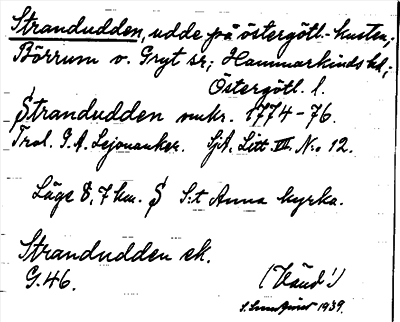 Strandudden, udde på östergötl.-kusten;
Börrum o. Gryt sr; Hammarkinds hd;
Östergötl. l.
Strandudden mkr. 1774-76.
Trol. G. A. Lejonanker. SjA, Litt. VII. N:o 12.
Läge 8,7 km. S S:t Anna kyrka.
Strandudden ek.
G.46.
(Vänd!)
1939.